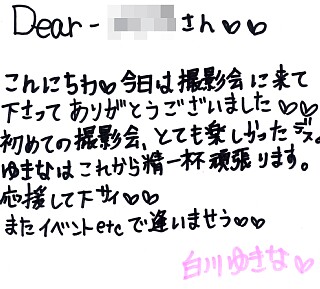 Dear- さん♡♡
こんにちわ♡今日は撮影会に来て
下さってありがとうございました♡♡
初めての撮影会、とても楽しかったデス。
ゆきなはこれから精一杯頑張ります。
応援して下サイ♡♡
またイベントetcで逢いませう♡♡
白川ゆきな♡